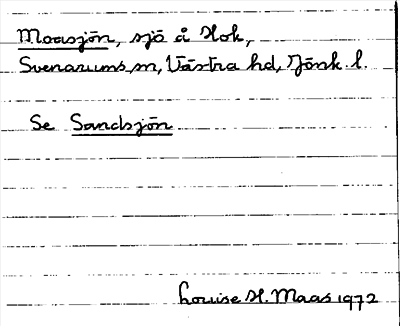 Moasjön, sjö å Hok,
Svenarums sn, Västra hd, Jönk. l.
Se Sandsjön
Louise H. Maas 1972